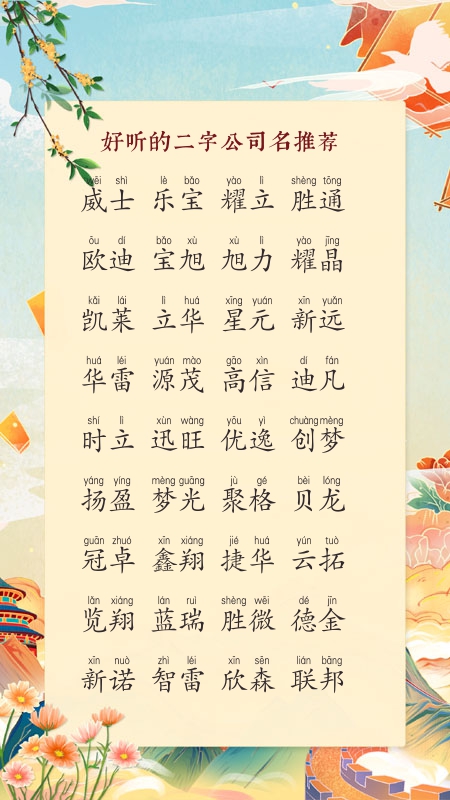 好听的二字公司名推荐
wēi shì lè bǎo yào lì shèng tōng
威士 乐宝 耀立 胜通
ōu dí bǎo xù xù lì yào jīng
欧迪 宝旭 旭力 耀晶
kǎi lái lì huá xīng yuán xīn yuǎn
凯莱 立华 星元 新远
huá léi yuán mào gāo xìn dí fán
华雷 源茂 高信 迪凡
shí lì xùn wàng yōu yì chuàng mèng
时立 迅旺 优逸 创梦
yáng yíng mèng guāng jù gé bèi lóng
扬盈 梦光 聚格 贝龙
guān zhuó xīn xiáng jié huá yún tuò
冠卓 鑫翔 捷华 云拓
lǎn xiáng lán ruì shèng wēi dé jīn
览翔 蓝瑞 胜微 德金
xīn nuò zhì léi xīn sēn lián bāng
新诺 智雷 欣森 联邦